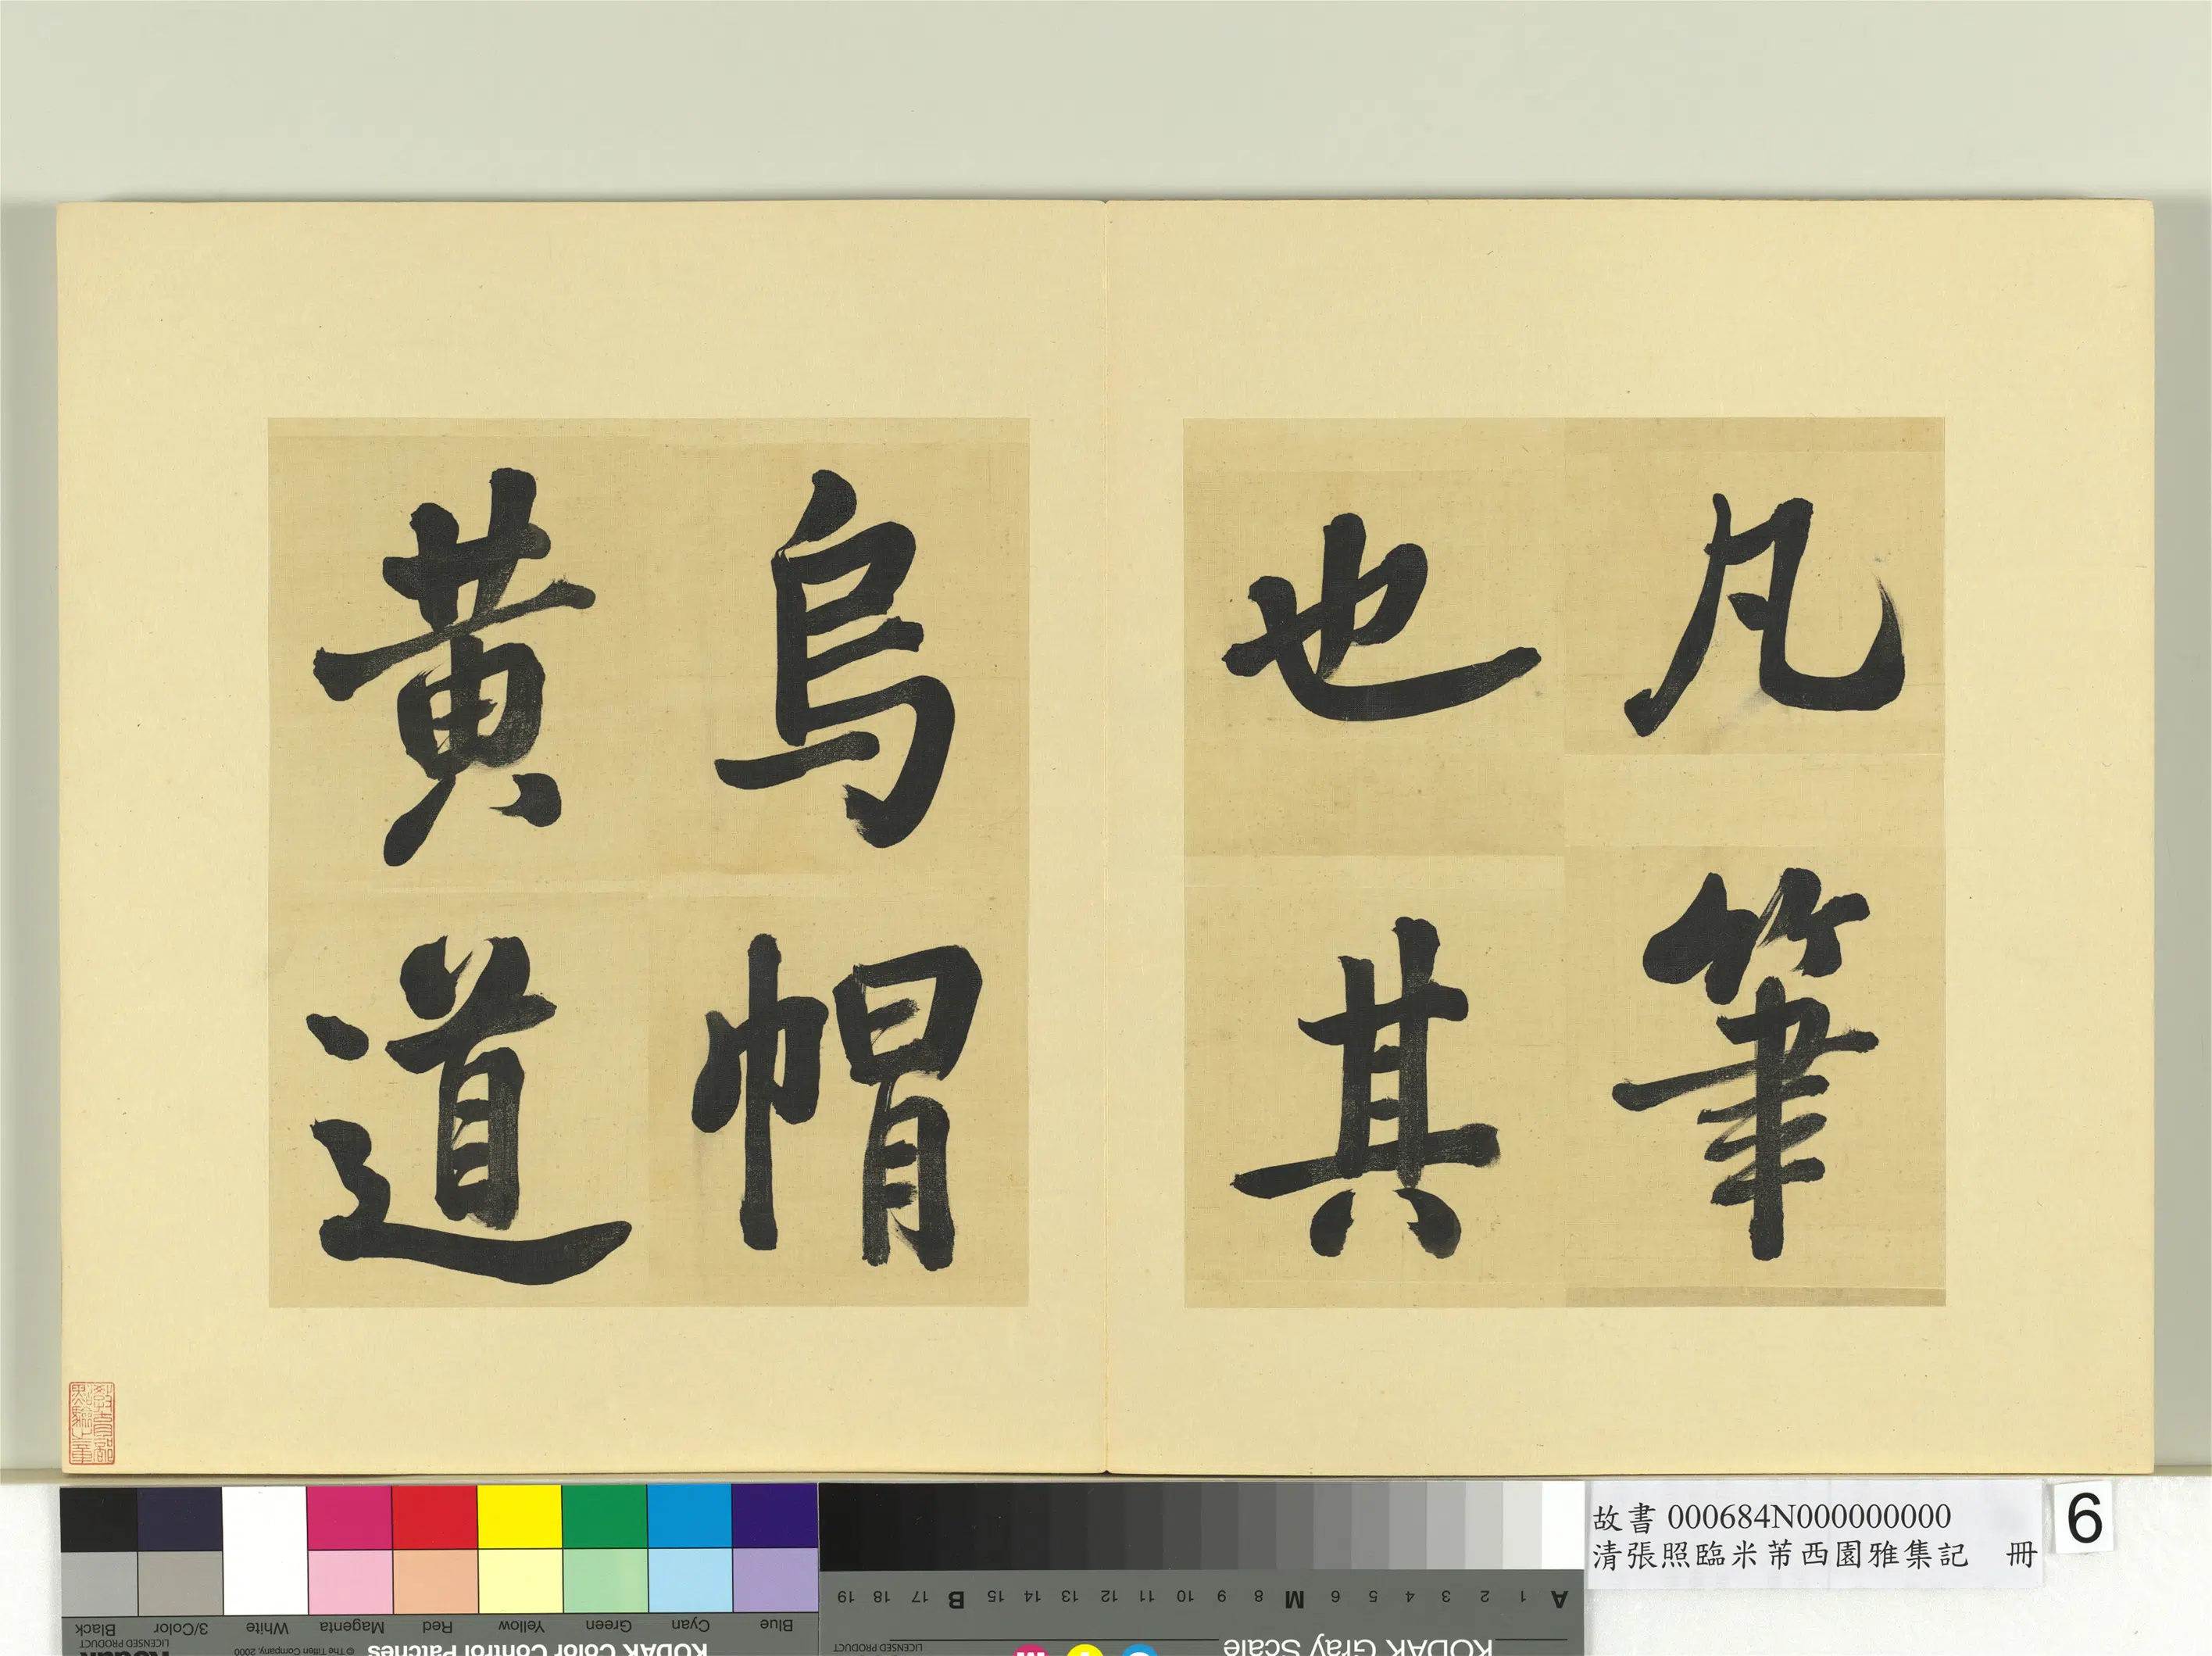 凡筆
也其
烏帽
黃道
教育部
點驗之章
故書 000684N000000000
清張照臨米芾西園雅集記 冊
6
Black 3/Color White Magenta Red Yellow Green Cyan Blue
LICENSED PRODUCT
Kodak
© The Tiffen Company, 2000
KODAK Color Control Patches
A 1 2 3 4 5 6 M 8 9 10 11 12 13 14 15 B 17 18 19
KODAK Gray Scale
LICENSED PRODUCT